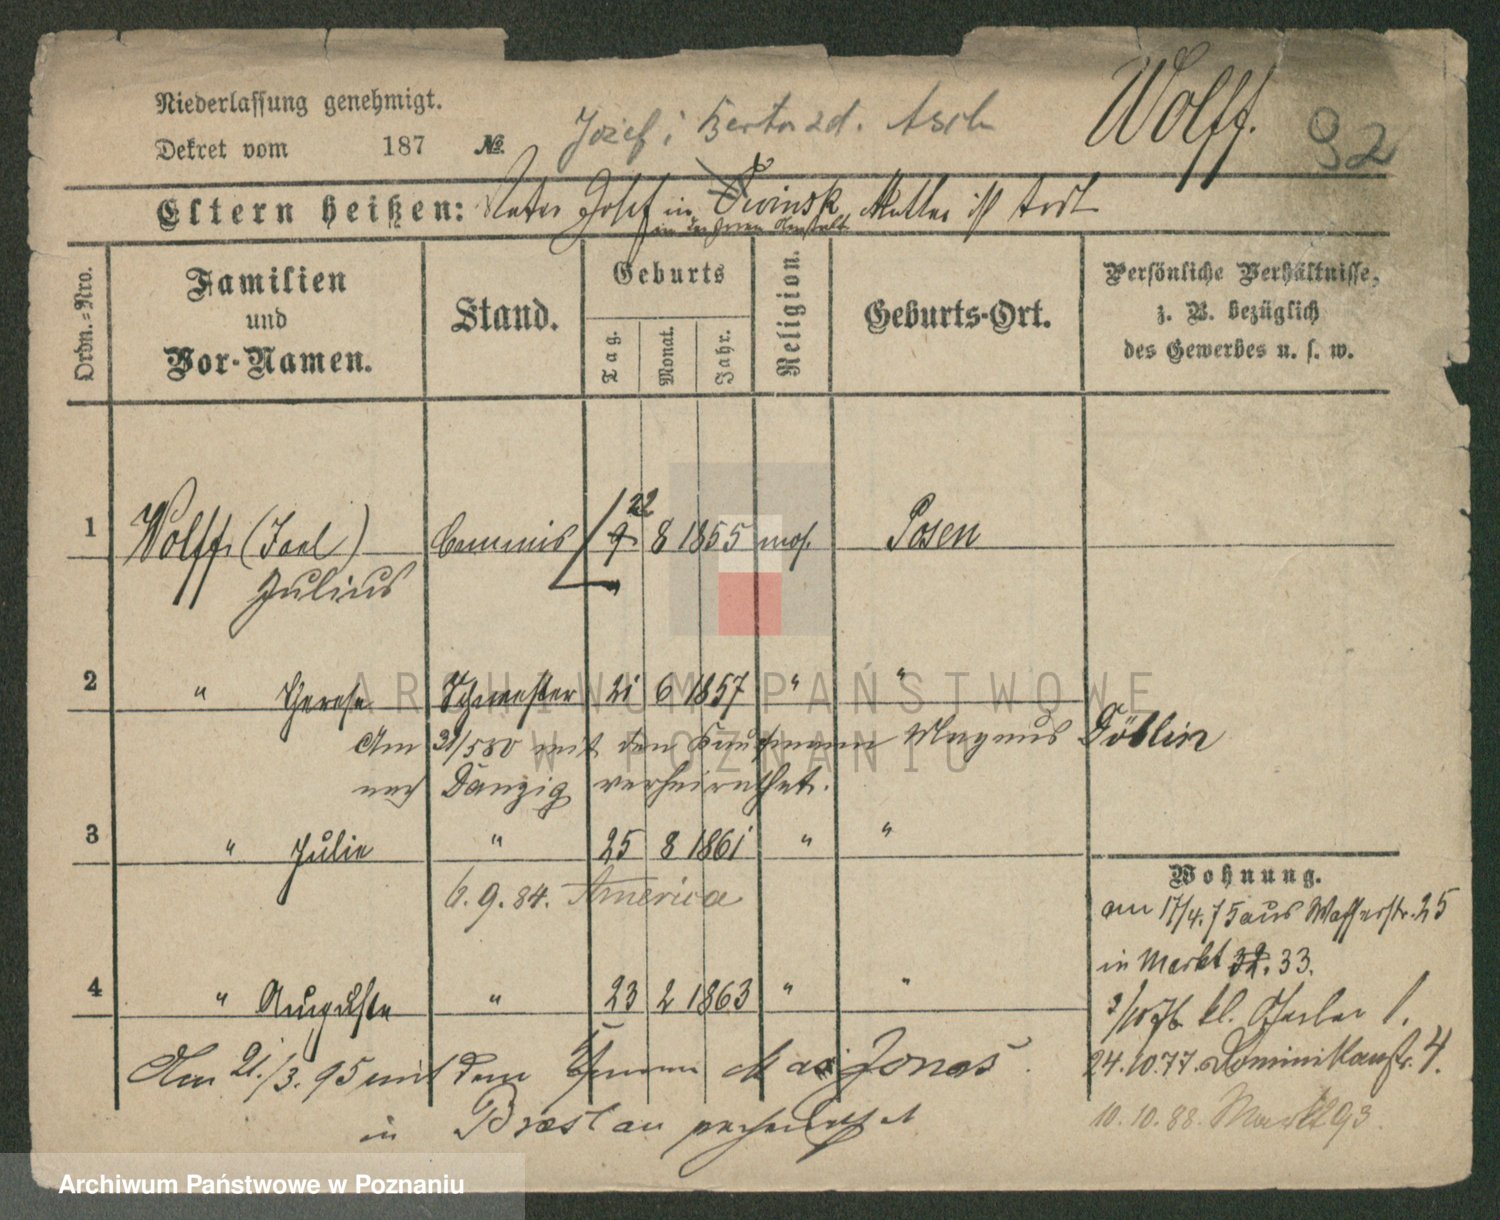 Niederlassung genehmigt.
Dekret vom 187 №.
Jozef i Berta zd. Asch
Wolff.
92
Eltern heißen: Vater Josef in Owinsk, Mutter ist todt
in der Irren Anstalt
Ordn.-Nro.
Familien und Vor-Namen.
Stand.
Geburts
Tag.
Monat.
Jahr.
Religion.
Geburts-Ort.
Persönliche Verhältnisse,
z. B. bezüglich
des Gewerbes u. s. w.
22
1 Wolff (Joel) Commis 9. 8 1855 mos. Posen
Julius
2 " Therese Schwester 21 6 1857 " "
Am 31/5 80 mit den Kaufmann Magnus Döblin
nach Danzig verheirathet.
3 " Julie " 25 8 1861 " "
6.9.84. America
4 " Auguste " 23 2 1863 " "
Am 21./3. 95 mit dem Max Jonas
in Breslau verheirathet
Wohnung.
am 17/4.75 aus Wasserstr. 25
in Markt 32. 33.
3/10 76 kl. Gerber 1.
24.10.77. Dominikanstr. 4.
10.10.88. Markt 93.
ARCHIWUM PAŃSTWOWE
W POZNANIU
Archiwum Państwowe w Poznaniu